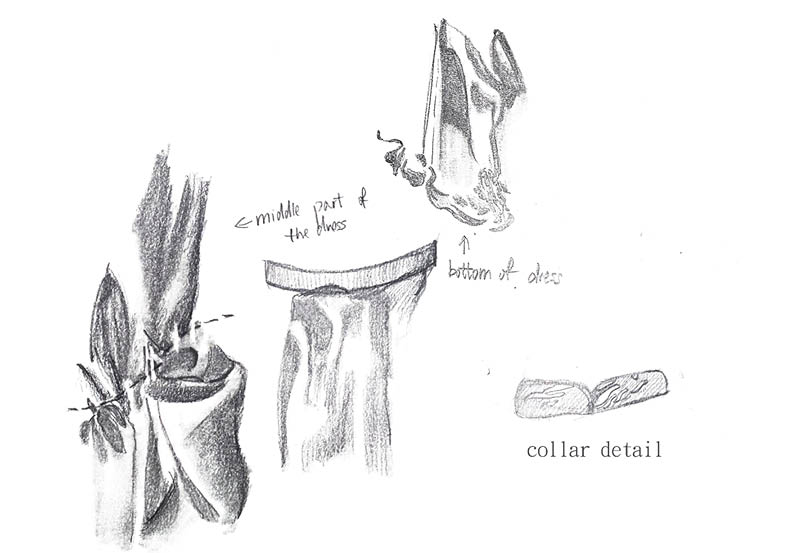 ←middle part of
the dress
↑
bottom of dress
collar detail